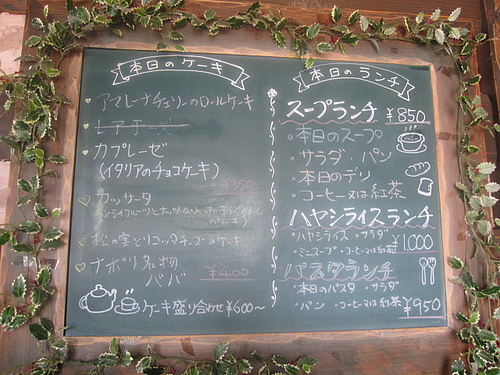 本日のケーキ
アマレーナチェリーのロールケーキ
レアチーズ
カプレーゼ
(イタリアのチョコケーキ)
¥350
カッサータ
松の実とリコッタチーズのケーキ
ナポリ名物
ババ
¥400
ケーキ盛り合わせ¥600〜
本日のランチ
スープランチ ¥850
・本日のスープ
・サラダ・パン
・本日のデリ
・コーヒー又は紅茶
ハヤシライスランチ
・ハヤシライス ・サラダ
・ミニスープ ・コーヒー又は紅茶
¥1,000
パスタランチ
・本日のパスタ ・サラダ
・パン ・コーヒー又は紅茶
¥950